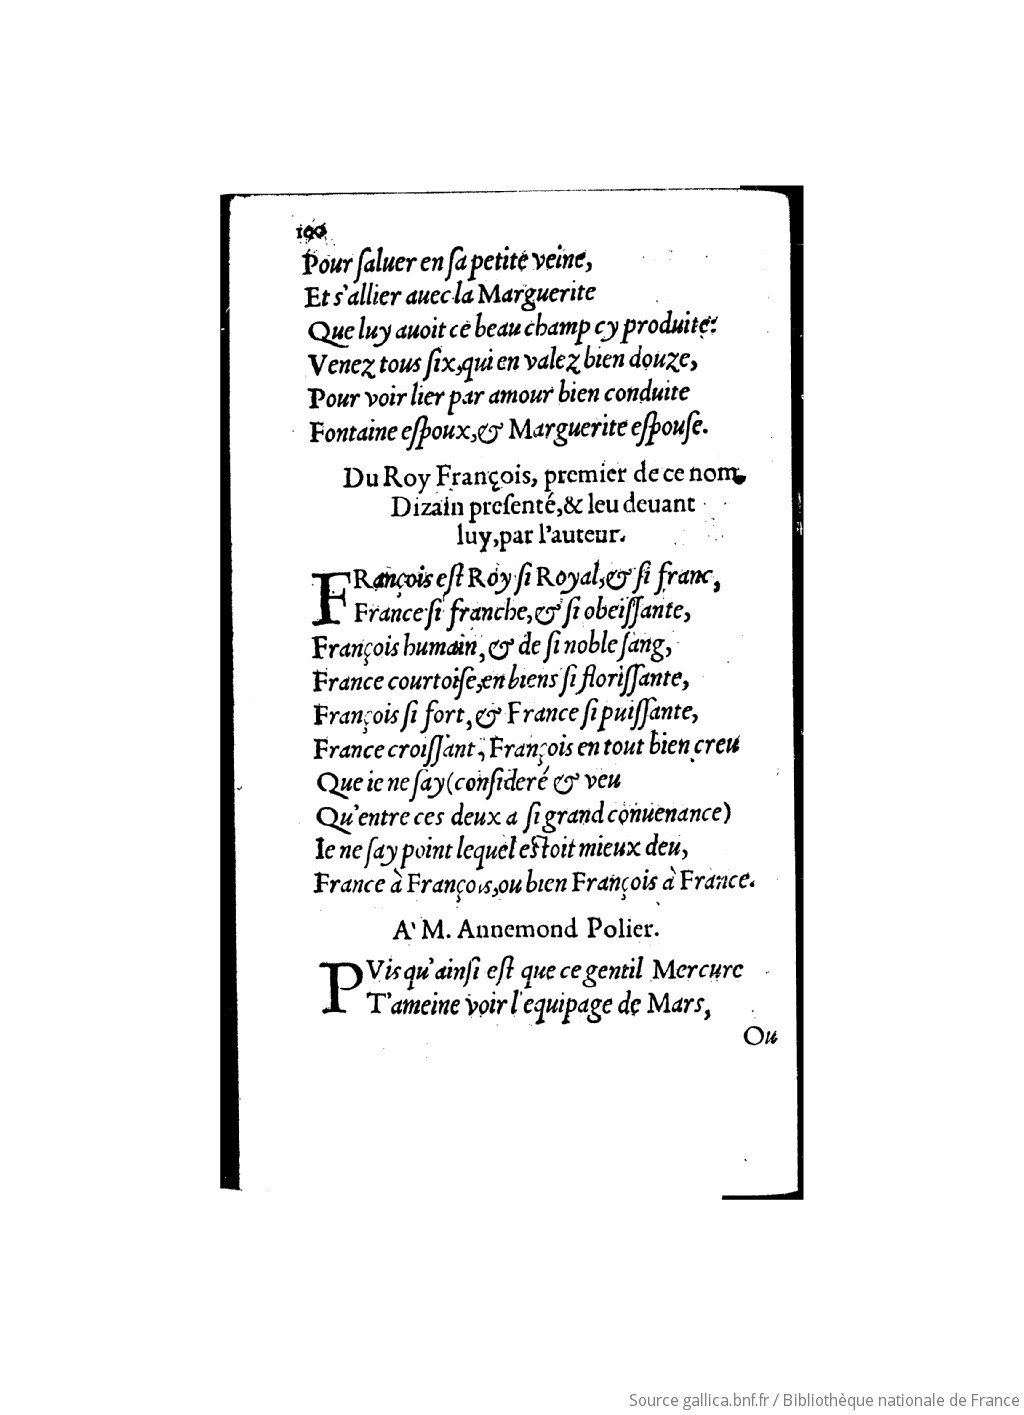 190
Pour ſaluer en ſa petite veine,
Et s'allier auec la Marguerite
Que luy auoit ce beau champ cy produite:
Venez tous ſix, qui en valez bien douze,
Pour voir lier par amour bien conduite
Fontaine eſpoux, & Marguerite eſpouſe.
Du Roy François, premier de ce nom,
Dizain preſenté, & leu deuant
luy, par l'auteur.
FRançois eſt Roy ſi Royal, & ſi franc,
France ſi franche, & ſi obeiſſante,
François humain, & de ſi noble ſang,
France courtoiſe, en biens ſi floriſſante,
François ſi fort, & France ſi puiſſante,
France croiſſant, François en tout bien creu
Que ie ne ſay (conſideré & veu
Qu'entre ces deux a ſi grand conuenance)
Ie ne ſay point lequel eſtoit mieux deu,
France à François, ou bien François à France.
A' M. Annemond Polier.
PVis qu'ainſi eſt que ce gentil Mercure
T'ameine voir l'equipage de Mars,
Ou
Source gallica.bnf.fr / Bibliothèque nationale de France